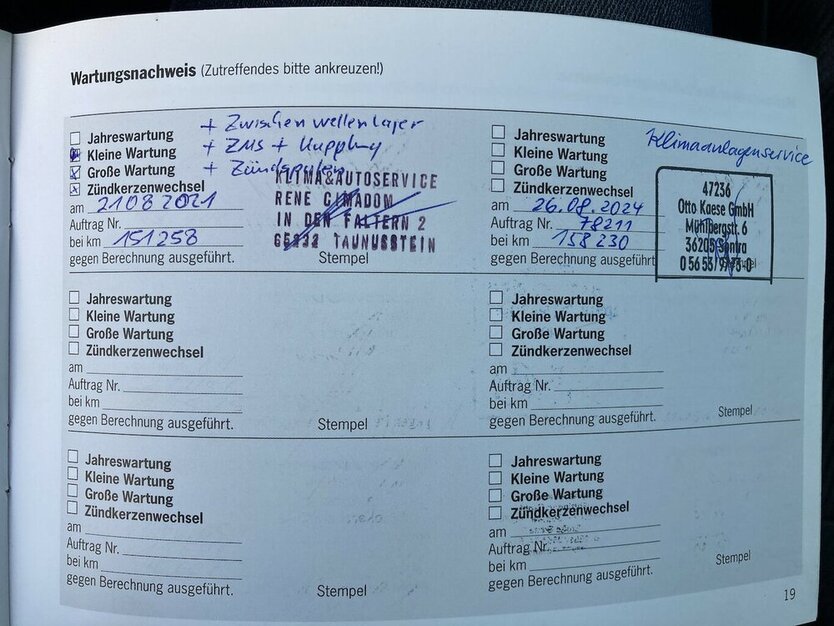 Wartungsnachweis (Zutreffendes bitte ankreuzen!)
Jahreswartung
Kleine Wartung
Große Wartung
Zündkerzenwechsel
+ Zwischenwellenlager
+ ZMS + Kupplung
+ Zündspulen
am 21082021
Auftrag Nr.
bei km 151258
gegen Berechnung ausgeführt.
KLIMA&AUTOSERVICE
RENE CIMADOM
IN DEN FALTERN 2
65232 TAUNUSSTEIN
Stempel
Jahreswartung
Kleine Wartung
Große Wartung
Zündkerzenwechsel
Klimaanlagenservice
am 26.08.2024
Auftrag Nr. 78211
bei km 158230
gegen Berechnung ausgeführt
47236
Otto Kaese GmbH
Mühlbergstr. 6
36205 Sontra
0 56 53/97
Stempel
Jahreswartung
Kleine Wartung
Große Wartung
Zündkerzenwechsel
am
Auftrag Nr.
bei km
gegen Berechnung ausgeführt.
Stempel
Jahreswartung
Kleine Wartung
Große Wartung
Zündkerzenwechsel
am
Auftrag Nr.
bei km
gegen Berechnung ausgeführt.
Stempel
Jahreswartung
Kleine Wartung
Große Wartung
Zündkerzenwechsel
am
Auftrag Nr.
bei km
gegen Berechnung ausgeführt.
Stempel
Jahreswartung
Kleine Wartung
Große Wartung
Zündkerzenwechsel
am
Auftrag Nr.
bei km
gegen Berechnung ausgeführt.
Stempel
19